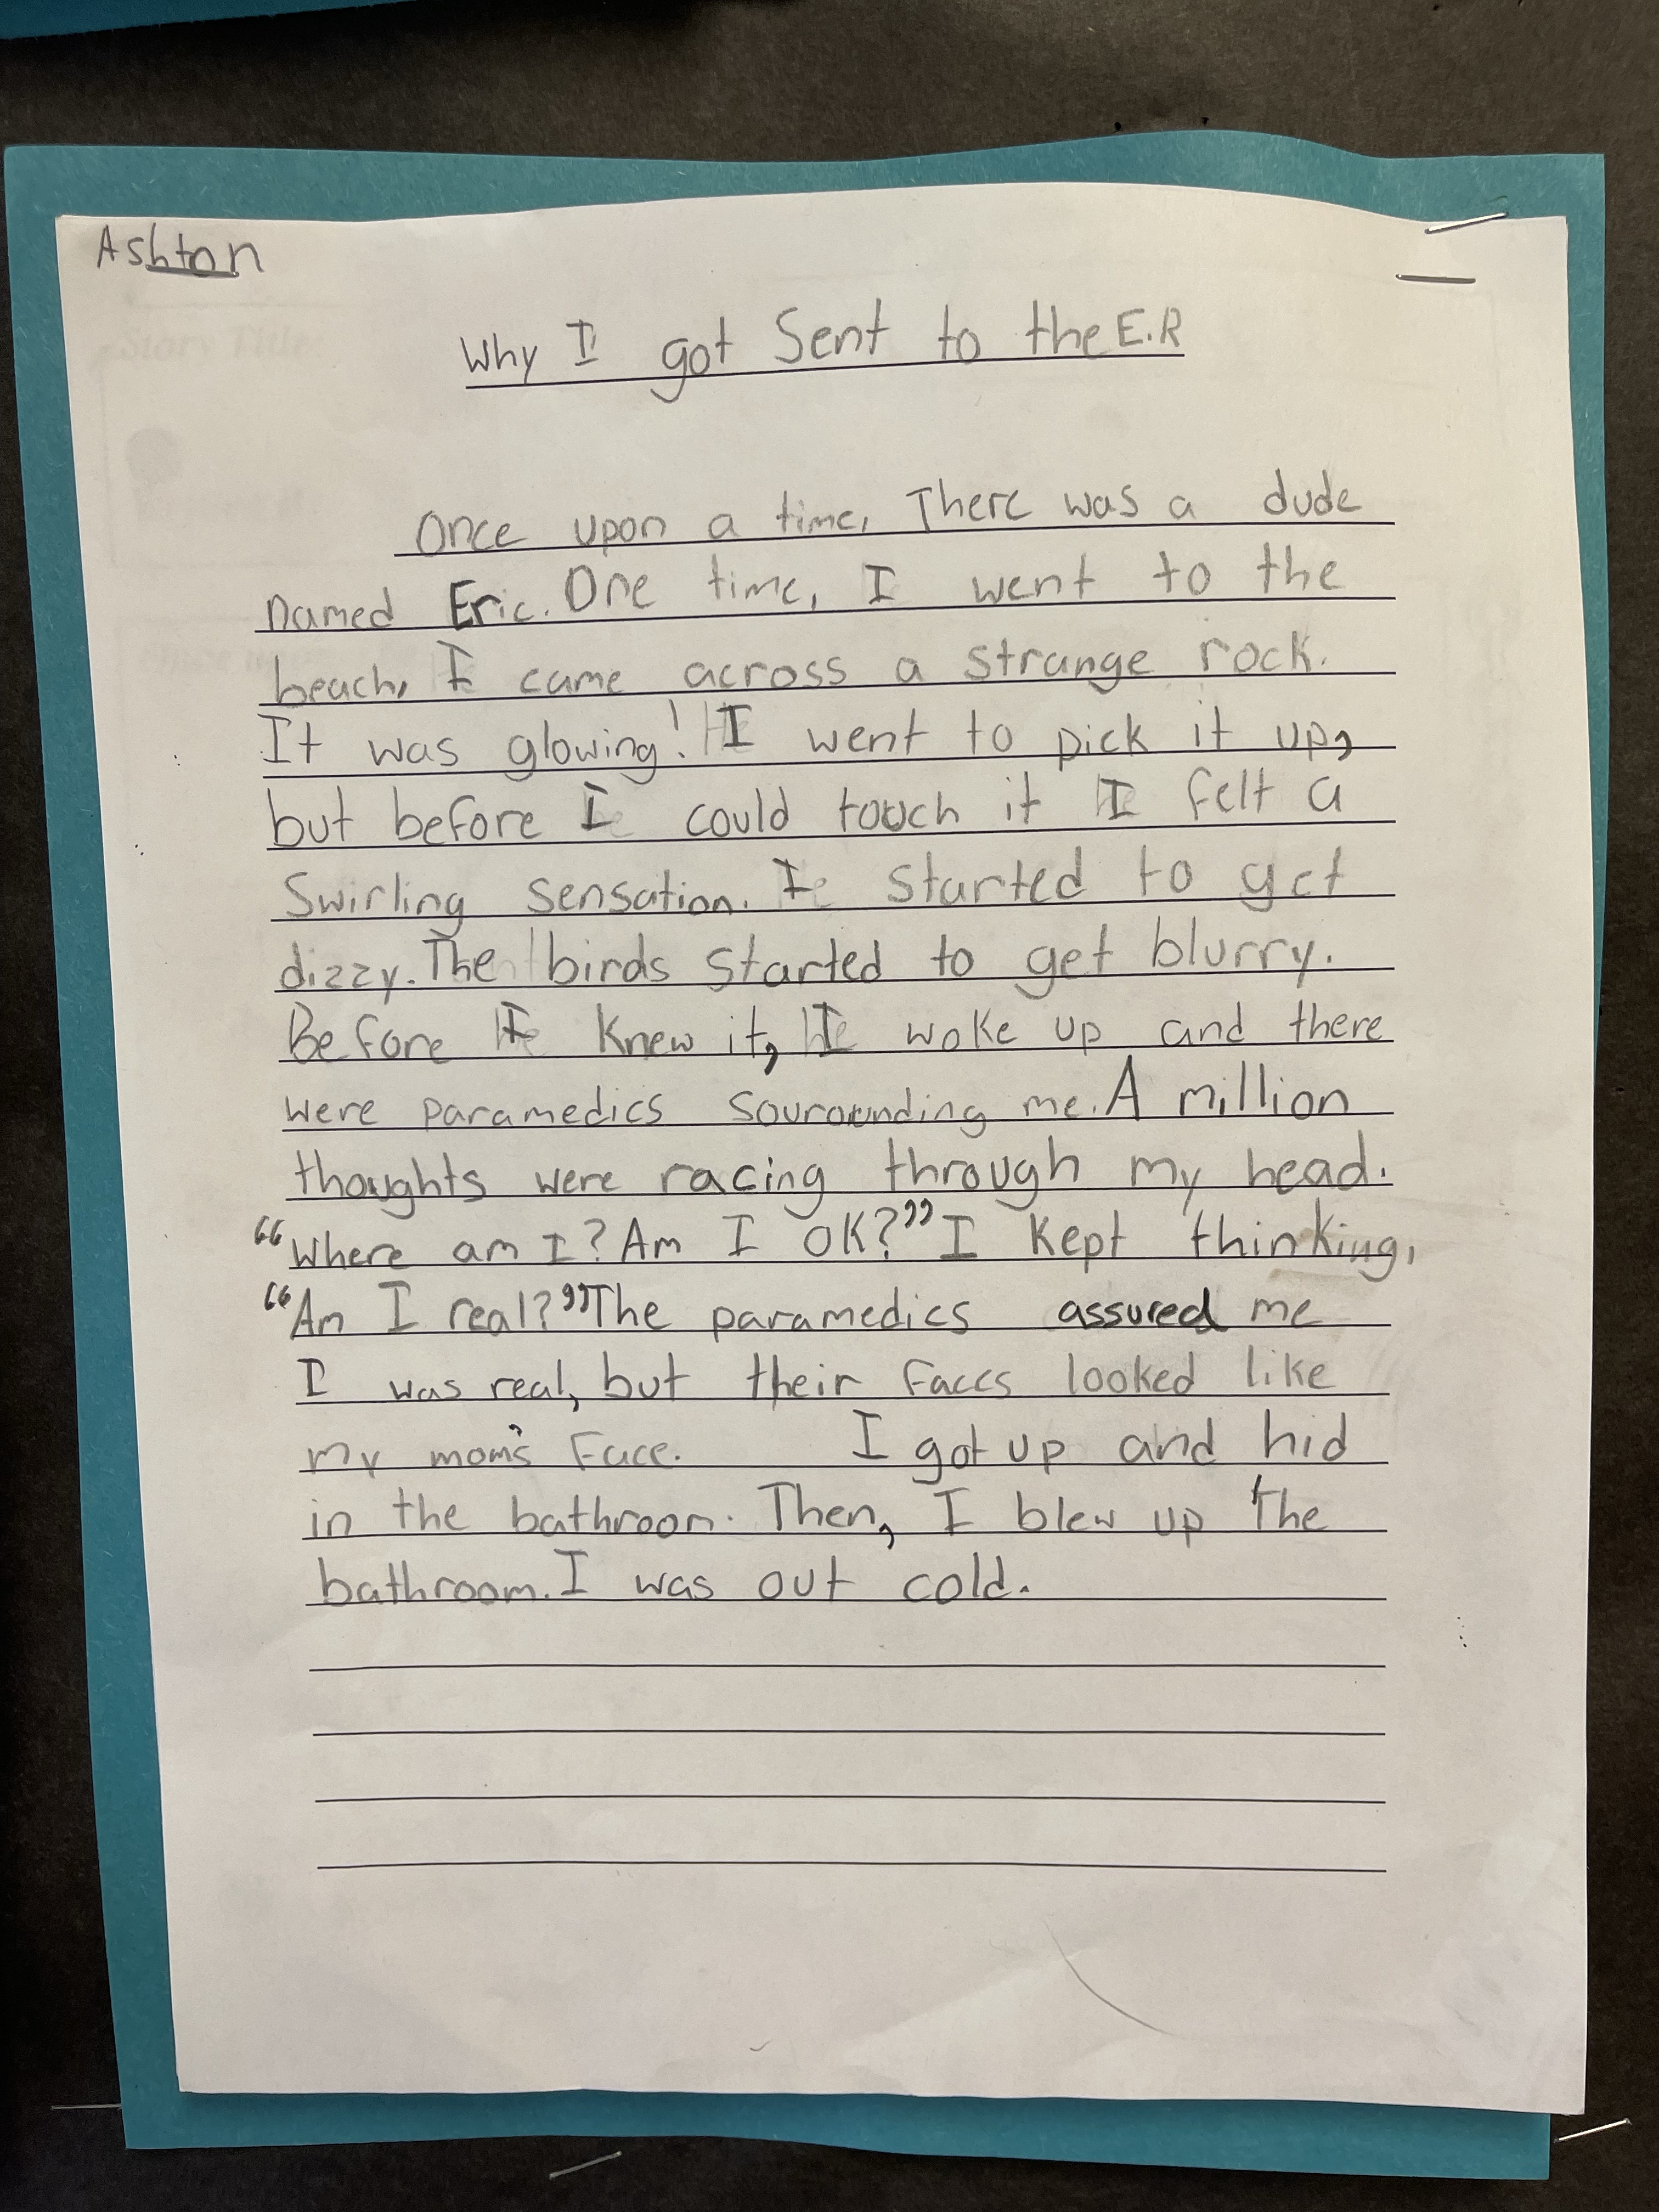 Ashton
Why I got Sent to the E.R
Once upon a time, There was a dude
named Eric. One time, I went to the
beach, I came across a strange rock.
It was glowing! I went to pick it up,
but before I could touch it I felt a
Swirling sensation. I started to get
dizzy. The birds started to get blurry.
Before I knew it, I woke up and there
were paramedics sourounding me. A million
thoughts were racing through my head.
“Where am I? Am I OK?” I kept thinking,
“Am I real?” The paramedics assured me
I was real, but their faces looked like
my mom's face. I got up and hid
in the bathroom. Then, I blew up the
bathroom. I was out cold.